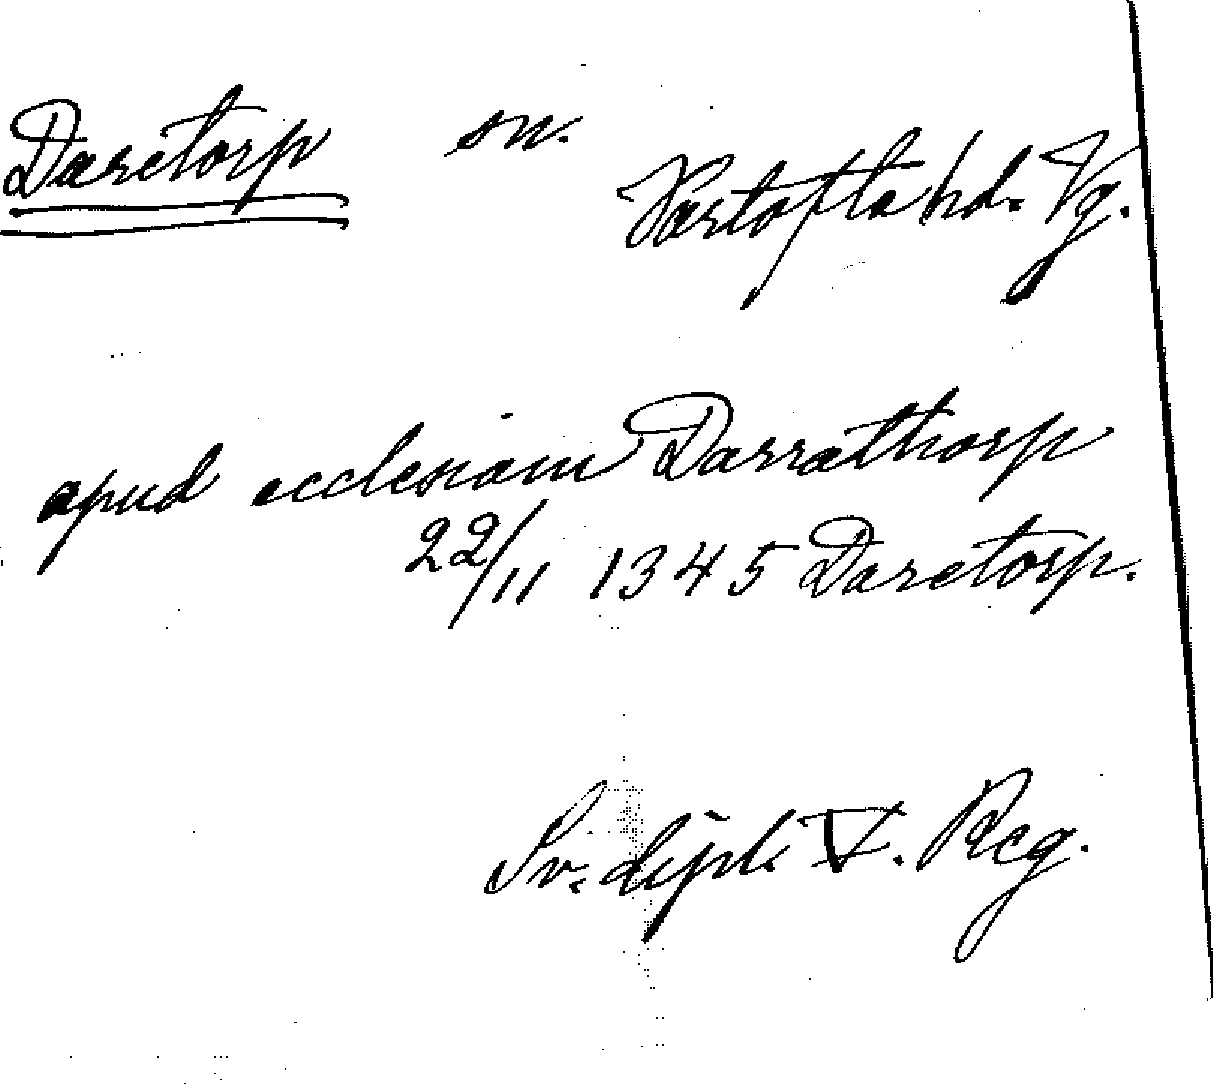 Daretorp sn. Vartofta hd. Vg.
apud ecclesiam Darrathorp
22/11 1345 Daretorp.
Sv. dipl. V. Reg.